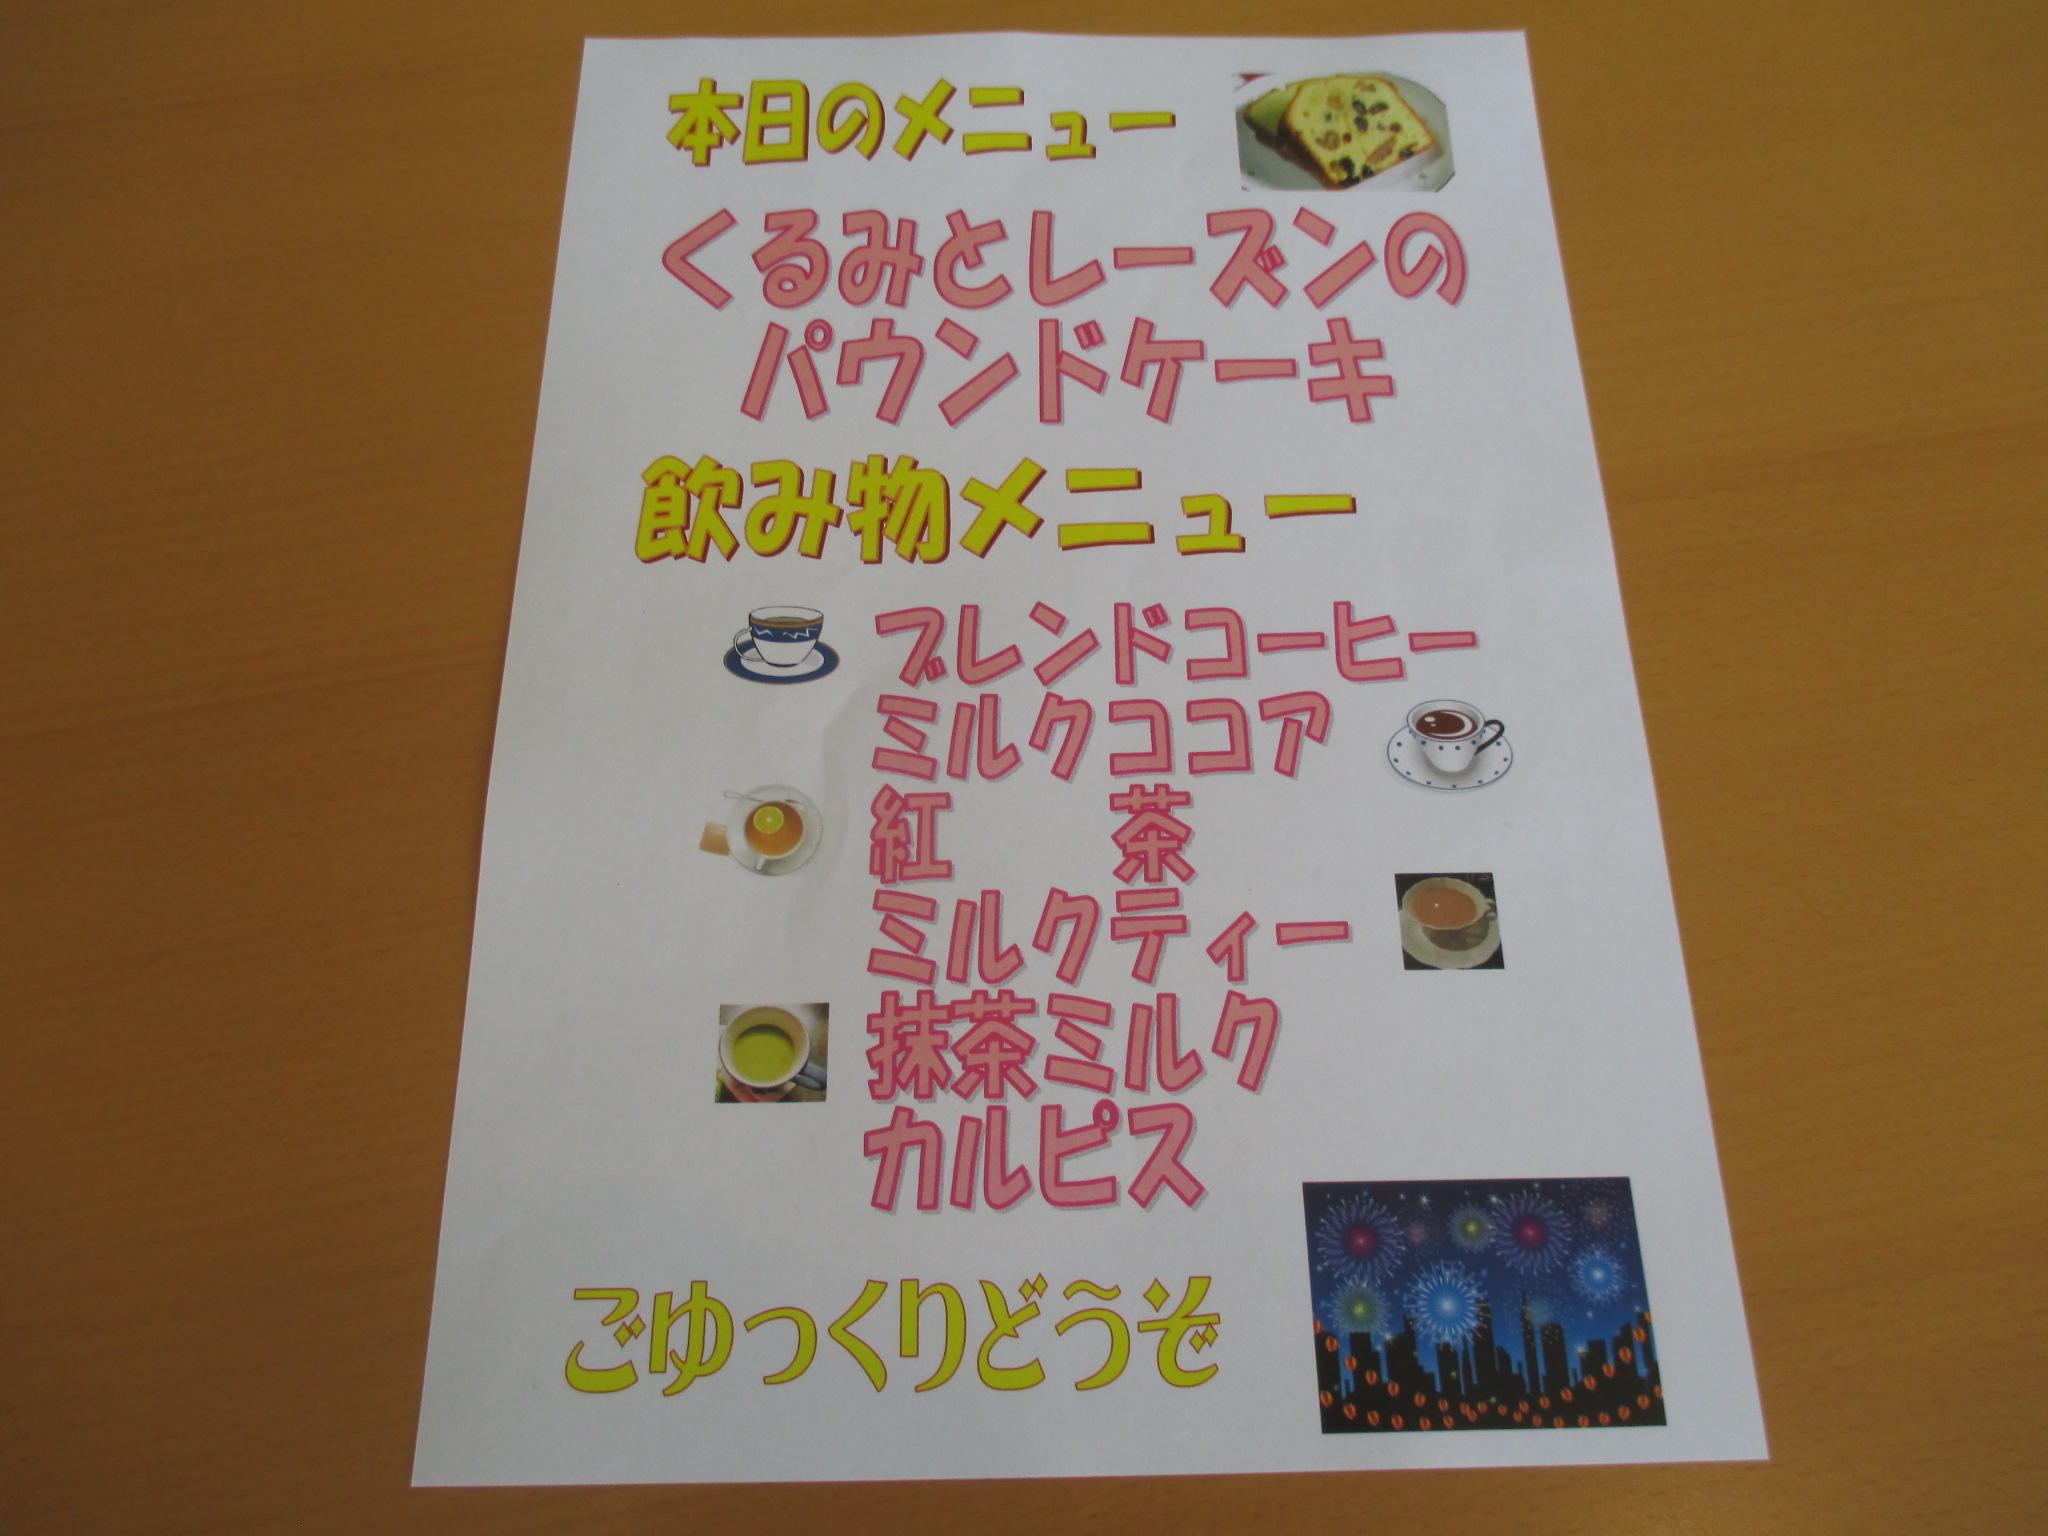 本日のメニュー
くるみとレーズンの
パウンドケーキ
飲み物メニュー
ブレンドコーヒー
ミルクココア
紅　　茶
ミルクティー
抹茶ミルク
カルピス
ごゆっくりどうぞ